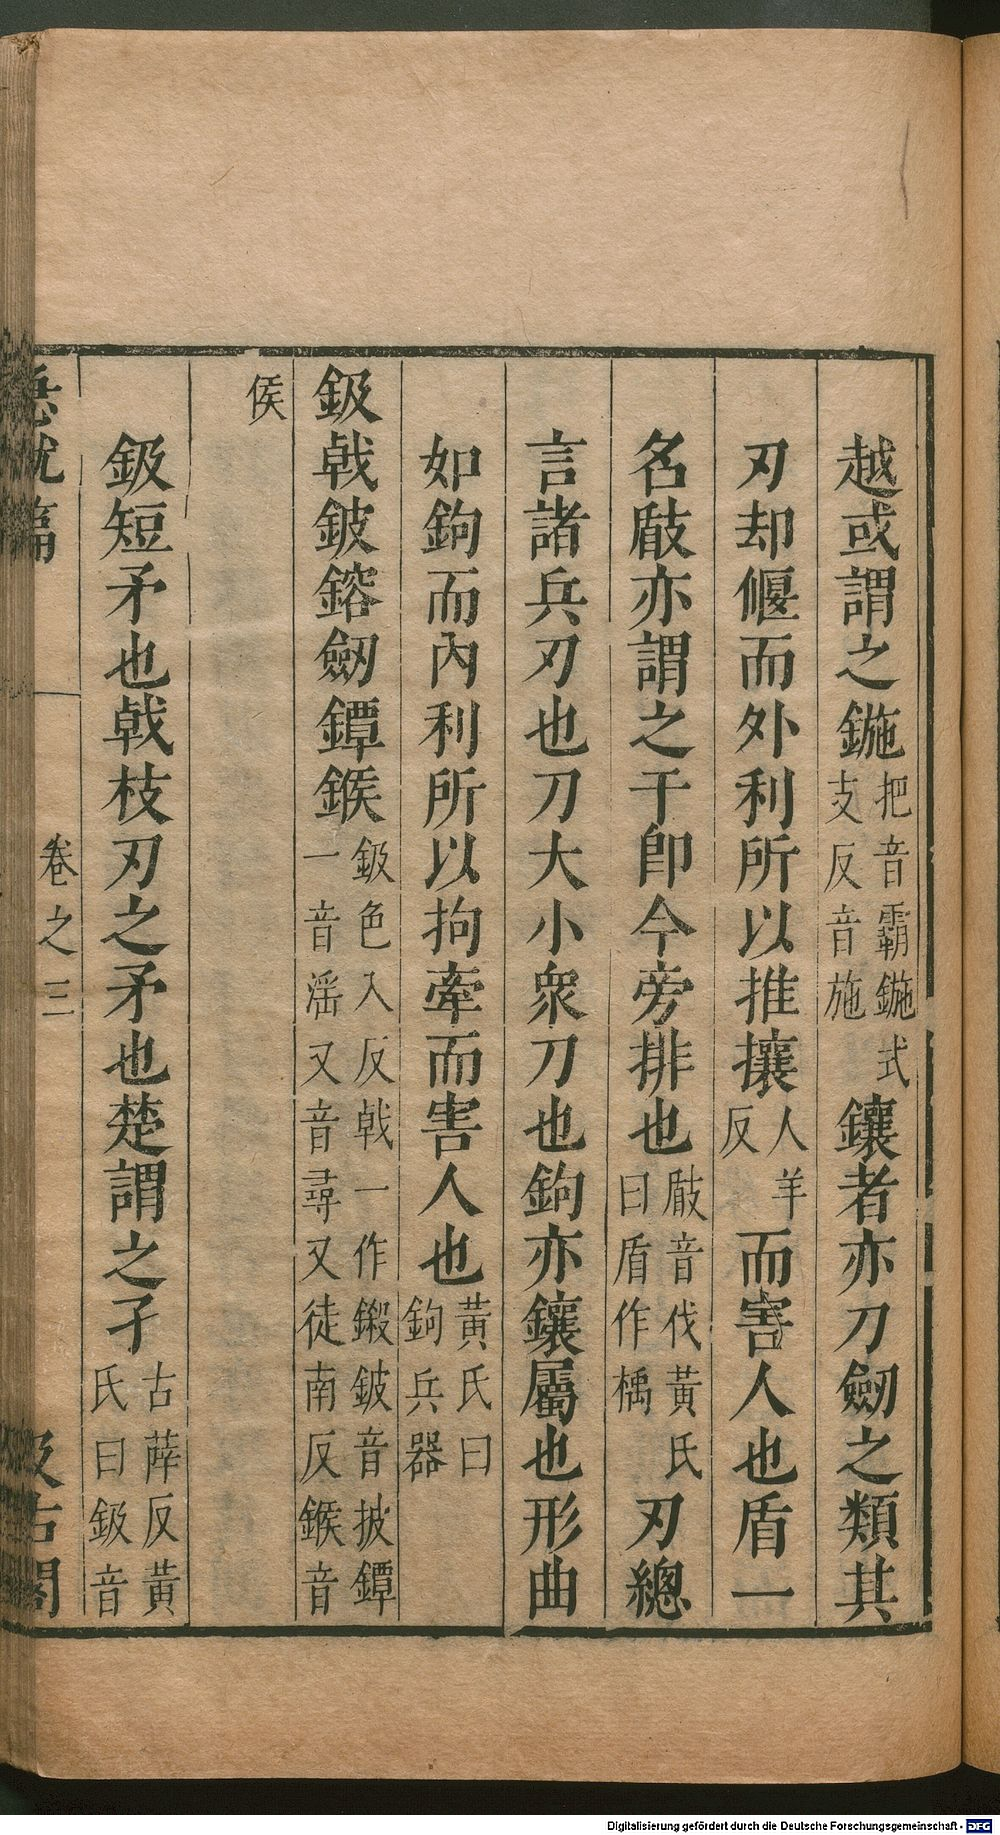 越或謂之鍦把音霸鍦式支反音施鑲者亦刀劒之類其
刃却偃而外利所以推攘人羊反而害人也盾一
名瞂亦謂之干卽今旁排也瞂音伐黃氏曰盾作楯刃總
言諸兵刃也刀大小衆刀也鉤亦鑲屬也形曲
如鉤而內利所以拘牽而害人也黃氏曰鉤兵器
鈒戟鈹鎔劒鐔鍭鈒色入反戟一作鍛鈹音披鐔一音滛又音尋又徒南反鍭音
侯
鈒短矛也戟枝刃之矛也楚謂之孑古薛反黃氏曰鈒音
急就篇
卷之三
汲古閣
Digitalisierung gefördert durch die Deutsche Forschungsgemeinschaft - DFG